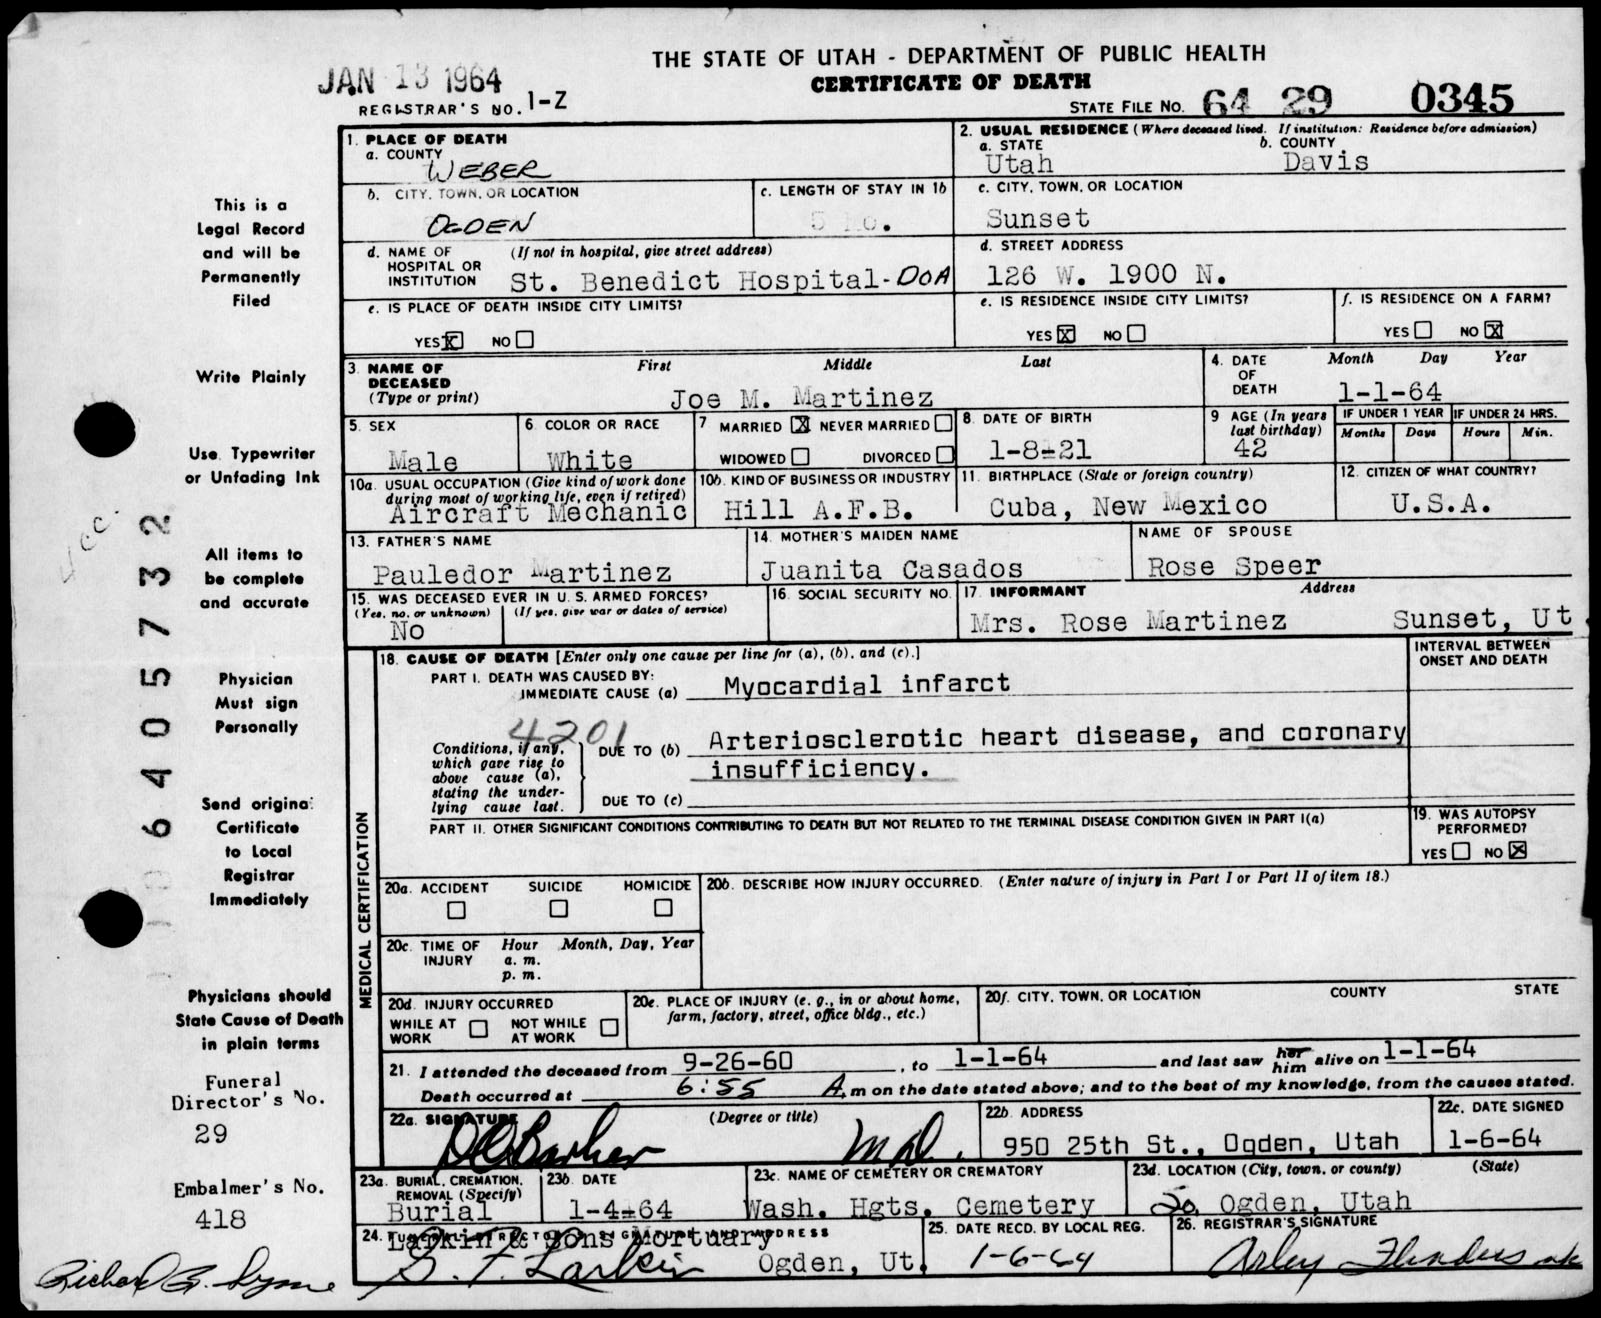 THE STATE OF UTAH - DEPARTMENT OF PUBLIC HEALTH
JAN 13 1964
CERTIFICATE OF DEATH
REGISTRAR'S NO. 1-Z
STATE FILE NO. 64 29 0345
1. PLACE OF DEATH
a. COUNTY
WEBER
2. USUAL RESIDENCE (Where deceased lived. If institution: Residence before admission)
a. STATE
Utah
b. COUNTY
Davis
b. CITY, TOWN, OR LOCATION
OGDEN
c. LENGTH OF STAY IN 1b
c. CITY, TOWN, OR LOCATION
Sunset
d. NAME OF HOSPITAL OR INSTITUTION
(If not in hospital, give street address)
St. Benedict Hospital-DOA
d. STREET ADDRESS
126 W. 1900 N.
e. IS PLACE OF DEATH INSIDE CITY LIMITS?
YES X NO
e. IS RESIDENCE INSIDE CITY LIMITS?
YES X NO
f. IS RESIDENCE ON A FARM?
YES NO X
3. NAME OF DECEASED (Type or print)
First Middle Last
Joe M. Martinez
4. DATE OF DEATH
Month Day Year
1-1-64
5. SEX
Male
6. COLOR OR RACE
White
7 MARRIED X NEVER MARRIED
WIDOWED DIVORCED
8. DATE OF BIRTH
1-8-21
9 AGE (In years last birthday)
42
IF UNDER 1 YEAR
Months Days
IF UNDER 24 HRS.
Hours Min.
10a. USUAL OCCUPATION (Give kind of work done during most of working life, even if retired)
Aircraft Mechanic
10b. KIND OF BUSINESS OR INDUSTRY
Hill A.F.B.
11. BIRTHPLACE (State or foreign country)
Cuba, New Mexico
12. CITIZEN OF WHAT COUNTRY?
U.S.A.
13. FATHER'S NAME
Pauledor Martinez
14. MOTHER'S MAIDEN NAME
Juanita Casados
NAME OF SPOUSE
Rose Speer
15. WAS DECEASED EVER IN U. S. ARMED FORCES?
(Yes, no, or unknown) (If yes, give war or dates of service)
No
16. SOCIAL SECURITY NO.
17. INFORMANT Address
Mrs. Rose Martinez Sunset, Ut.
18. CAUSE OF DEATH [Enter only one cause per line for (a), (b), and (c).]
INTERVAL BETWEEN ONSET AND DEATH
PART I. DEATH WAS CAUSED BY:
IMMEDIATE CAUSE (a) Myocardial infarct
4201
Conditions, if any, which gave rise to above cause (a), stating the underlying cause last.
DUE TO (b) Arteriosclerotic heart disease, and coronary
insufficiency.
DUE TO (c)
PART II. OTHER SIGNIFICANT CONDITIONS CONTRIBUTING TO DEATH BUT NOT RELATED TO THE TERMINAL DISEASE CONDITION GIVEN IN PART I(a)
19. WAS AUTOPSY PERFORMED?
YES NO X
MEDICAL CERTIFICATION
20a. ACCIDENT SUICIDE HOMICIDE
20b. DESCRIBE HOW INJURY OCCURRED. (Enter nature of injury in Part I or Part II of item 18.)
20c. TIME OF INJURY Hour Month, Day, Year
a. m.
p. m.
20d. INJURY OCCURRED
WHILE AT WORK NOT WHILE AT WORK
20e. PLACE OF INJURY (e. g., in or about home, farm, factory, street, office bldg., etc.)
20f. CITY, TOWN, OR LOCATION COUNTY STATE
21. I attended the deceased from 9-26-60, to 1-1-64 and last saw her him alive on 1-1-64
Death occurred at 6:55 A.m on the date stated above; and to the best of my knowledge, from the causes stated.
22a. SIGNATURE (Degree or title)
Barker M.D.
22b. ADDRESS
950 25th St., Ogden, Utah
22c. DATE SIGNED
1-6-64
23a. BURIAL, CREMATION, REMOVAL (Specify)
Burial
23b. DATE
1-4-64
23c. NAME OF CEMETERY OR CREMATORY
Wash. Hgts. Cemetery
23d. LOCATION (City, town, or county) (State)
So. Ogden, Utah
24. FUNERAL DIRECTOR'S SIGNATURE AND ADDRESS
Larkin & Sons Mortuary
G. F. Larkin Ogden, Ut.
25. DATE RECD. BY LOCAL REG.
1-6-64
26. REGISTRAR'S SIGNATURE
Arley Flinders
This is a
Legal Record
and will be
Permanently
Filed
Write Plainly
Use Typewriter
or Unfading Ink
All items to
be complete
and accurate
Physician
Must sign
Personally
Send original
Certificate
to Local
Registrar
Immediately
Physicians should
State Cause of Death
in plain terms
Funeral
Director's No.
29
Embalmer's No.
418
Richard B. Lyme
0640 5732